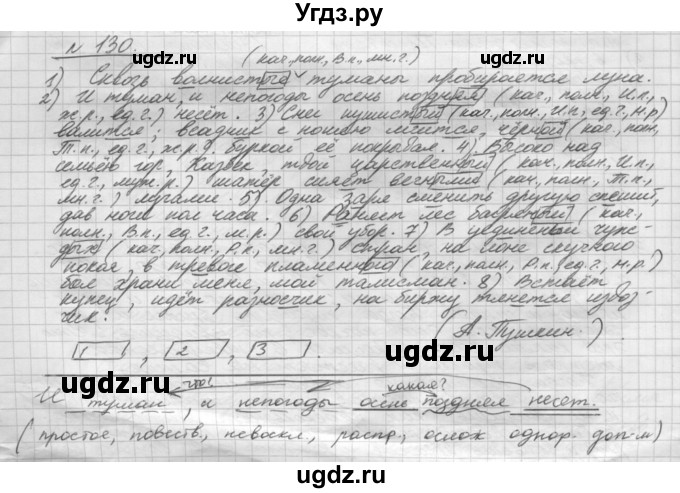 Угдз.ру
№ 130.
(кач., полн., В.п., мн.ч.)
1) Сквозь волнистые туманы пробирается луна.
2) И туман, и непогоды осень поздняя (кач., полн., И.п.,
ж.р., ед.ч.) несёт. 3) Снег пушистый (кач., полн., И.п., ед.ч., м.р)
валится; всадник с ношею мчится, чёрной (кач., полн,
Т.п., ед.ч., ж.р.) буркой её покрывал. 4) Высоко над
семьёю гор, Казбек, твой царственный (кач., полн, И.п.,
ед.ч., муж.р.) шатёр сияет вечными (кач, полн., Т.п.,
мн.ч.) лучами. 5) Одна заря сменить другую спешит,
дав ночи пол часа. 6) Роняет лес багряный (кач.,
полн., В.п., ед.ч., м.р.) свой убор. 7) В уединеньи чуж-
дых (кач, полн., Р.п., мн.ч.) стран, на лоне скучного
покоя, в тревоге пламенного (кач., полн., Р.п., ед.ч., м.р.)
боя храни меня, мой талисман. 8) Встаёт
купец, идёт разносчик, на биржу тянется извоз-
чик.
(А. Пушкин.)
1 , 2 , 3 .
что? какая?
И туман, и непогоды осень поздняя несёт.
(простое, повеств., невоскл., распр., ослож однор. доп-м)
ugdz.ru
ugdz.ru
ugdz.ru
ugdz.ru
ugdz.ru
ugdz.ru
ugdz.ru
ugdz.ru
ugdz.ru
ugdz.ru
ugdz.ru
ugdz.ru